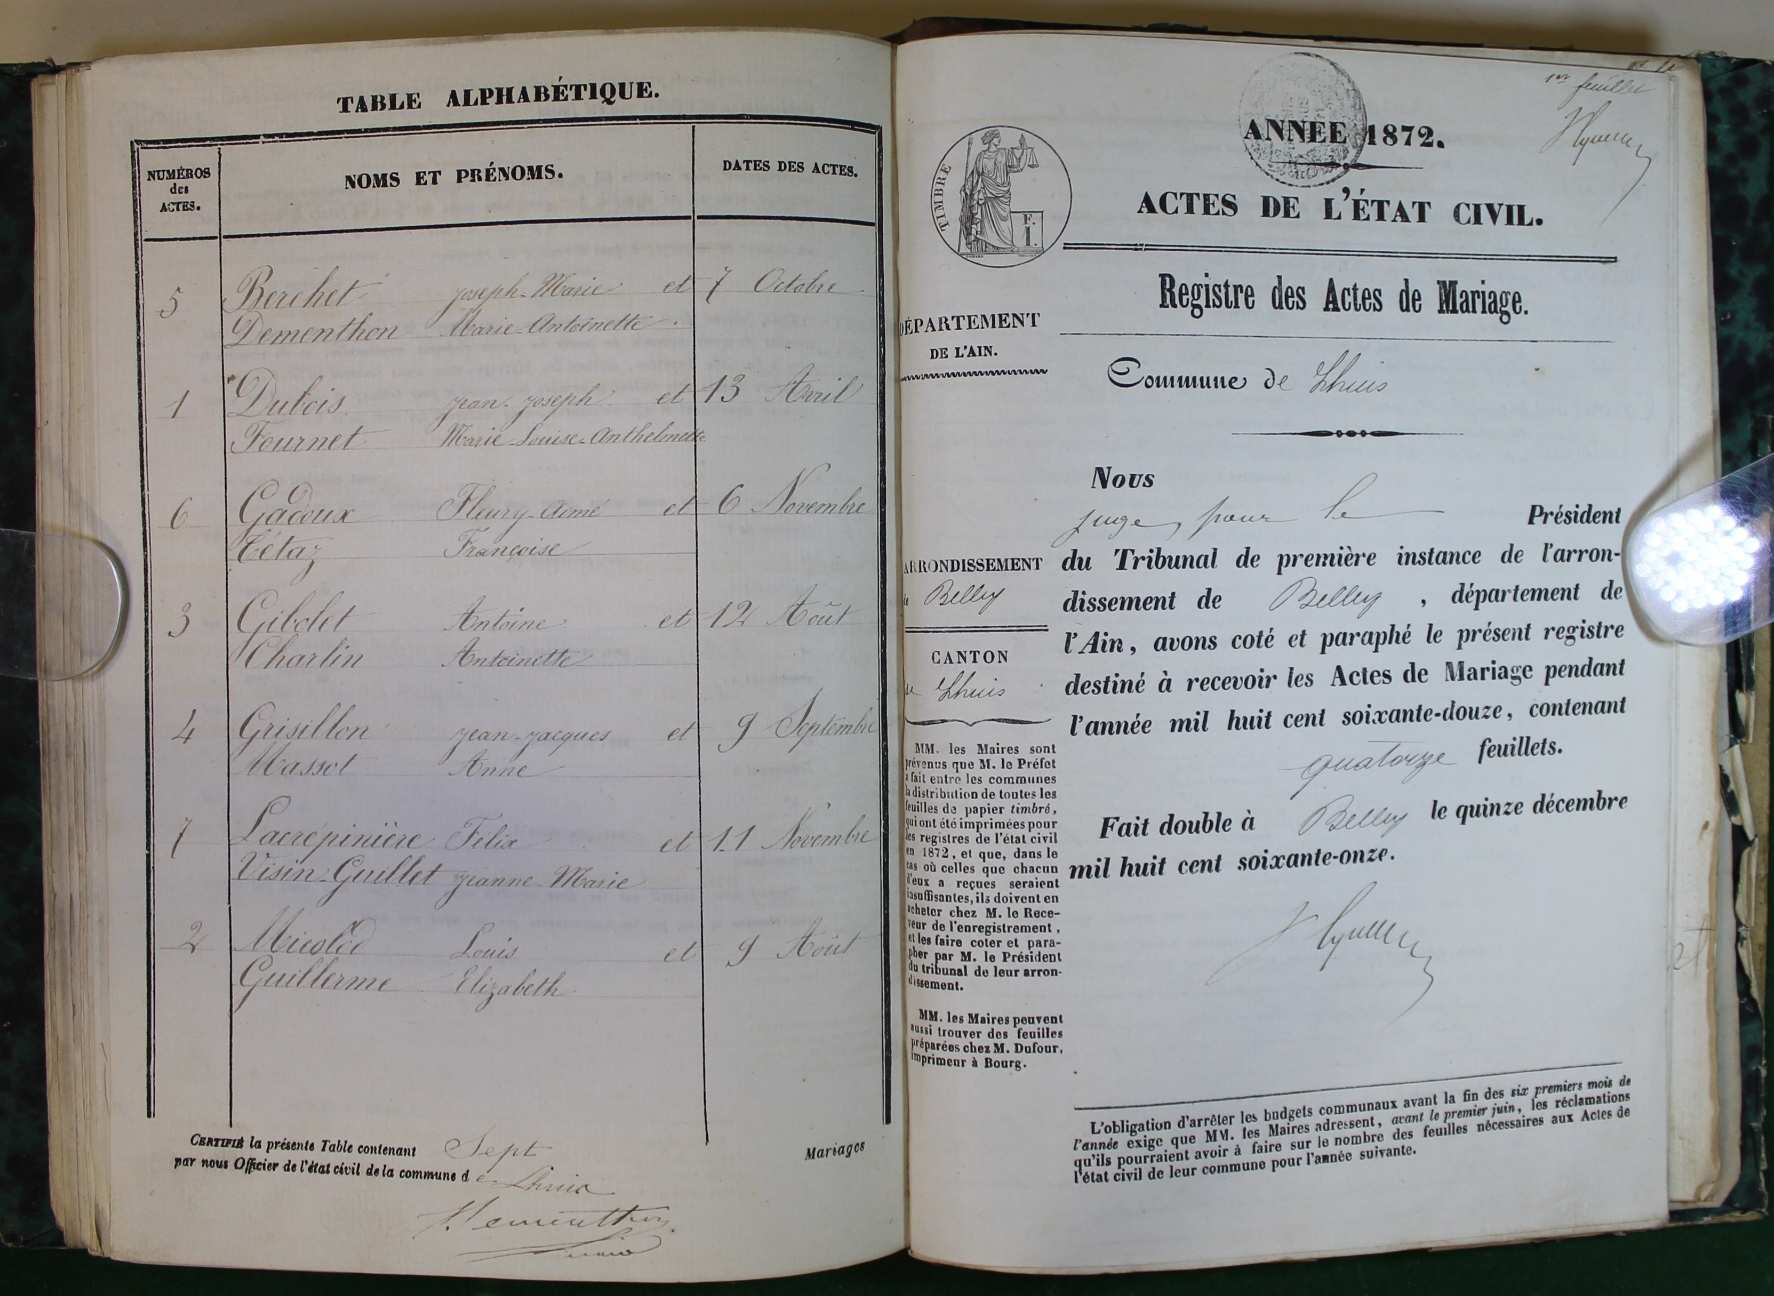 TABLE ALPHABÉTIQUE.
NUMÉROS
des
ACTES.
NOMS ET PRÉNOMS.
DATES DES ACTES.
5 Berchet Joseph-Marie et 7 Octobre
Dementhon Marie-Antoinette.
1 Dubois Jean-Joseph et 13 Avril
Fournet Marie-Louise-Anthelmette
6 Gadoux Fleury-Aimé et 6 Novembre
Tétaz Françoise
3 Gibolet Antoine et 12 Août
Charlin Antoinette
4 Grisillon Jean-Jacques et 9 Septembre
Massot Anne
7 Lacrépinière Félix et 11 Novembre
Visin-Guillet Jeanne-Marie
2 Micolod Louis et 9 Août
Guillerme Elizabeth
CERTIFIÉ la présente Table contenant Sept Mariages
par nous Officier de l'état civil de la commune de Lhuis
Dementhon
1er feuillet
ANNÉE 1872.
TIMBRE
F.
I.
ACTES DE L'ÉTAT CIVIL.
Registre des Actes de Mariage.
DÉPARTEMENT
DE L'AIN.
Commune de Lhuis
ARRONDISSEMENT
de Belley
CANTON
de Lhuis
MM. les Maires sont
prévenus que M. le Préfet
a fait entre les communes
la distribution de toutes les
feuilles de papier timbré,
qui ont été imprimées pour
les registres de l'état civil
en 1872, et que, dans le
cas où celles que chacun
d'eux a reçues seraient
insuffisantes, ils doivent en
acheter chez M. le Rece-
veur de l'enregistrement,
et les faire coter et para-
pher par M. le Président
du tribunal de leur arron-
dissement.
MM. les Maires peuvent
aussi trouver des feuilles
préparées chez M. Dufour,
imprimeur à Bourg.
Nous
juge, pour le Président
du Tribunal de première instance de l'arron-
dissement de Belley, département de
l'Ain, avons coté et paraphé le présent registre
destiné à recevoir les Actes de Mariage pendant
l'année mil huit cent soixante-douze, contenant
quatorze feuillets.
Fait double à Belley le quinze décembre
mil huit cent soixante-onze.
L'obligation d'arrêter les budgets communaux avant la fin des six premiers mois de
l'année exige que MM. les Maires adressent, avant le premier juin, les réclamations
qu'ils pourraient avoir à faire sur le nombre des feuilles nécessaires aux Actes de
l'état civil de leur commune pour l'année suivante.